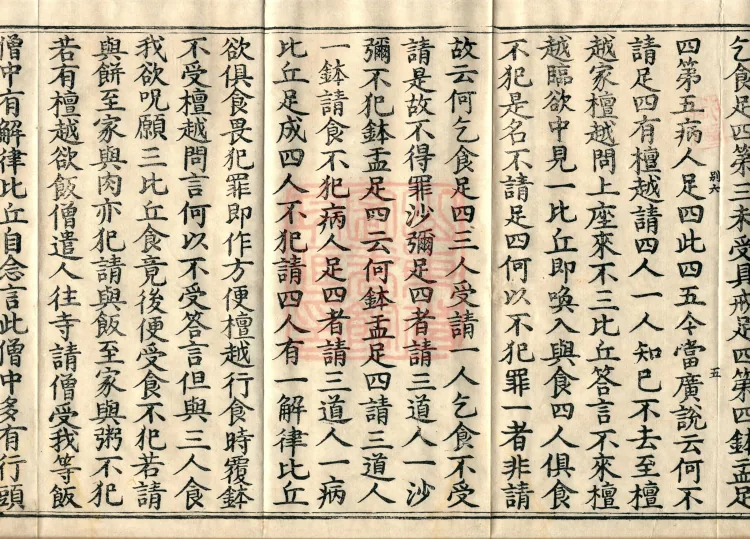 乞食足四第三未受具戒足四第四鉢盂足
四第五病人足四此四五今當廣說云何不
別六 五
請足四有檀越請四人一人知已不去至檀
越家檀越問上座來不三比丘答言不來檀
越臨欲中見一比丘即喚入與食四人俱食
不犯是名不請足四何以不犯罪一者非請
故云何乞食足四三人受請一人乞食不受
請是故不得罪沙彌足四者請三道人一沙
彌不犯鉢盂足四云何鉢盂足四請三道人
一鉢請食不犯病人足四者請三道人一病
比丘足成四人不犯請四人有一解律比丘
欲俱食畏犯罪即作方便檀越行食時覆鉢
不受檀越問言何以不受答言但與三人食
我欲呪願三比丘食竟後便受食不犯若請
與餅至家與肉亦犯請與飯至家與粥不犯
若有檀越欲飯僧遣人往寺請僧受我等飯
僧中有解律比丘自念言此僧中多有行頭